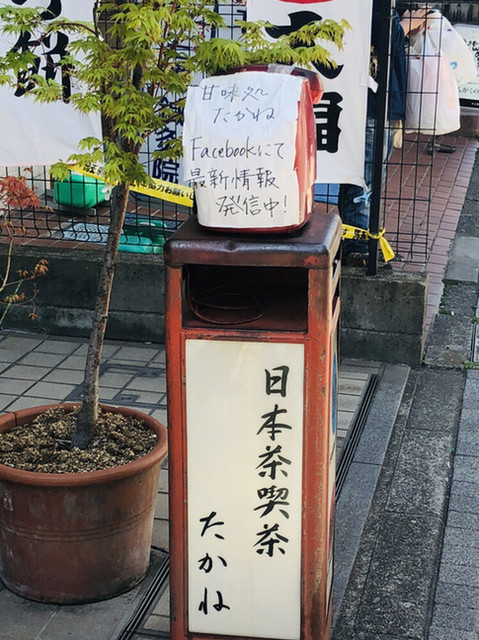 甘味処
たかね
Facebookにて
最新情報
発信中!
日本茶喫茶
たかね
餅
福